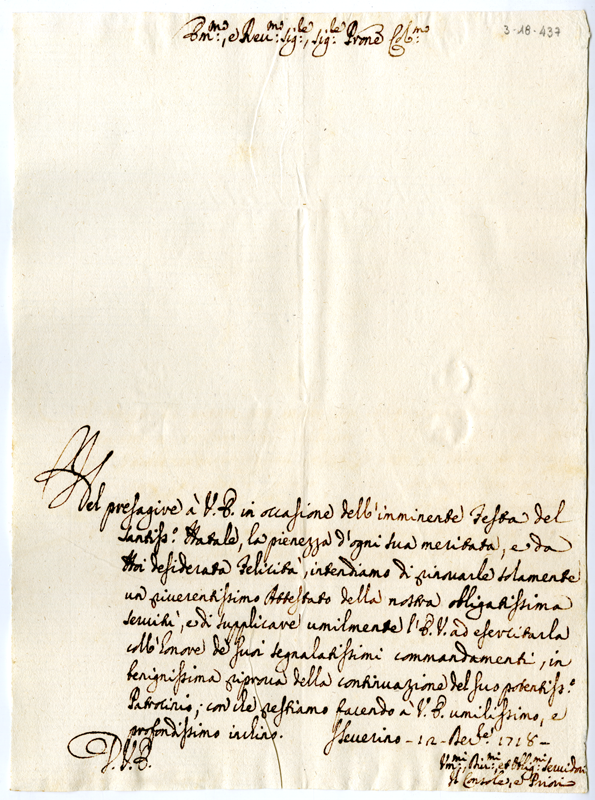 Em.mo, e Reu.mo Sig.le, Sig.le Prone Col.mo
3-18-437
Nel presagire à V.E. in occasione dell'imminente Festa del
Santiss.o Natale, la pienezza d'ogni sua meritata, e da
Noi desiderata Felicità, intendiamo di rinouarle solamente
un riuerentissimo Attestato della nostra obligatissima
seruitù, e di supplicare umilmente l'E.V. ad esercitarla
coll'honore de suoi segnalatissimi commandamenti, in
benignissima riproua della continuazione del suo potentiss.o
Patrocinio; con che restiamo facendo à V.E. umilissimo, e
profondissimo inchino. SSeuerino - 12 - Xbre 1718 -
D.V.E.
Um.mi, Diu.mi, et Oblig.mi Seruidori
Il Console, e Priori